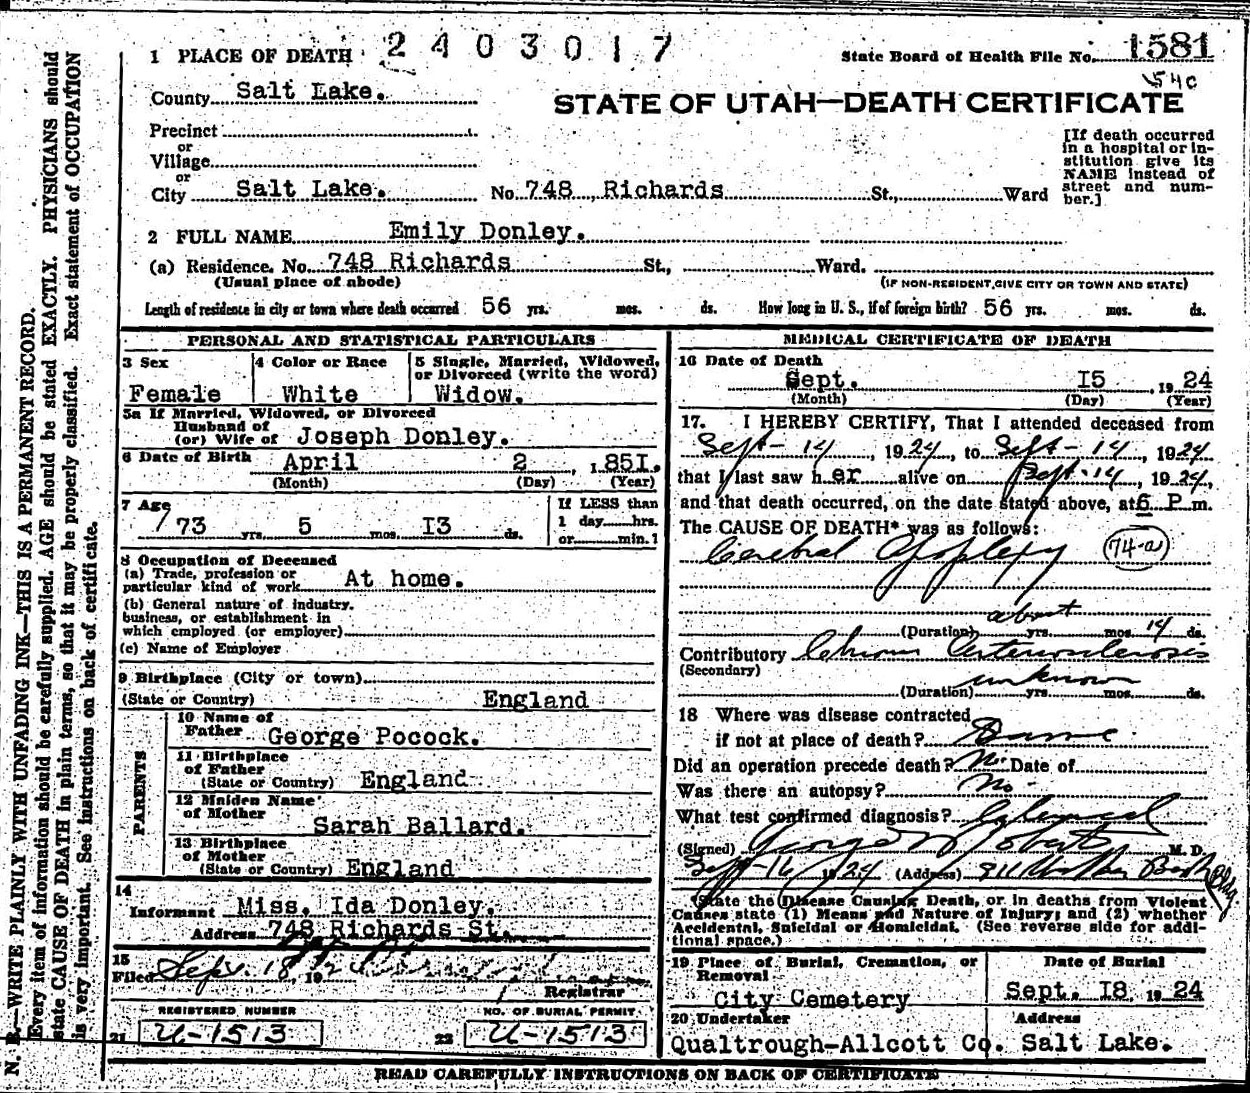 2403017
State Board of Health File No. 1581
54c
1 PLACE OF DEATH
County Salt Lake.
STATE OF UTAH—DEATH CERTIFICATE
Precinct
or
Village
or
City Salt Lake. No. 748 Richards St., Ward
[If death occurred
in a hospital or in-
stitution give its
NAME instead of
street and num-
ber.]
2 FULL NAME Emily Donley.
(a) Residence. No. 748 Richards St., Ward.
(Usual place of abode)
(IF NON-RESIDENT, GIVE CITY OR TOWN AND STATE)
Length of residence in city or town where death occurred 56 yrs. mos. ds. How long in U. S., if of foreign birth? 56 yrs. mos. ds.
PERSONAL AND STATISTICAL PARTICULARS
3 Sex
Female
4 Color or Race
White
5 Single, Married, Widowed,
or Divorced (write the word)
Widow.
5a If Married, Widowed, or Divorced
Husband of
(or) Wife of Joseph Donley.
6 Date of Birth April 2, 1851.
(Month) (Day) (Year)
7 Age
73 yrs. 5 mos. I3 ds.
If LESS than
1 day hrs.
or min.1
8 Occupation of Deceased
(a) Trade, profession or
particular kind of work At home.
(b) General nature of industry.
business, or establishment in
which employed (or employer)
(c) Name of Employer
9 Birthplace (City or town)
(State or Country) England
PARENTS
10 Name of
Father George Pocock.
11 Birthplace
of Father
(State or Country) England
12 Maiden Name
of Mother
Sarah Ballard.
13 Birthplace
of Mother
(State or Country) England
14
Informant Miss. Ida Donley.
Address 748 Richards St.
15
Filed Sept. 18, 1924
Registrar
REGISTERED NUMBER
21 U-1513
NO. OF BURIAL PERMIT
22 U-1513
MEDICAL CERTIFICATE OF DEATH
16 Date of Death
Sept. I5, 1924
(Month) (Day) (Year)
17. I HEREBY CERTIFY, That I attended deceased from
Sept-14, 1924, to Sept-14, 1924
that I last saw her alive on Sept-14, 1924,
and that death occurred, on the date stated above, at 6 P.m.
The CAUSE OF DEATH* was as follows:
Cerebral Apoplexy 74-a
about
(Duration) yrs. mos. 14 ds.
Contributory Chronic Arteriosclerosis
(Secondary)
unknown
(Duration) yrs. mos. ds.
18 Where was disease contracted
if not at place of death? Same
Did an operation precede death? No. Date of
Was there an autopsy? No.
What test confirmed diagnosis?
(Signed) George Roberts M. D.
Sept-16 1924 (Address) Bldg
*State the Disease Causing Death, or in deaths from Violent
Causes state (1) Means and Nature of Injury; and (2) whether
Accidental, Suicidal or Homicidal. (See reverse side for addi-
tional space.)
19 Place of Burial, Cremation, or
Removal
City Cemetery
Date of Burial
Sept. I8 1924
20 Undertaker
Qualtrough-Allcott Co.
Address
Salt Lake.
READ CAREFULLY INSTRUCTIONS ON BACK OF CERTIFICATE
N. B.—WRITE PLAINLY WITH UNFADING INK—THIS IS A PERMANENT RECORD.
Every item of information should be carefully supplied. AGE should be stated EXACTLY. PHYSICIANS should
state CAUSE OF DEATH in plain terms, so that it may be properly classified. Exact statement of OCCUPATION
is very important. See instructions on back of certificate.